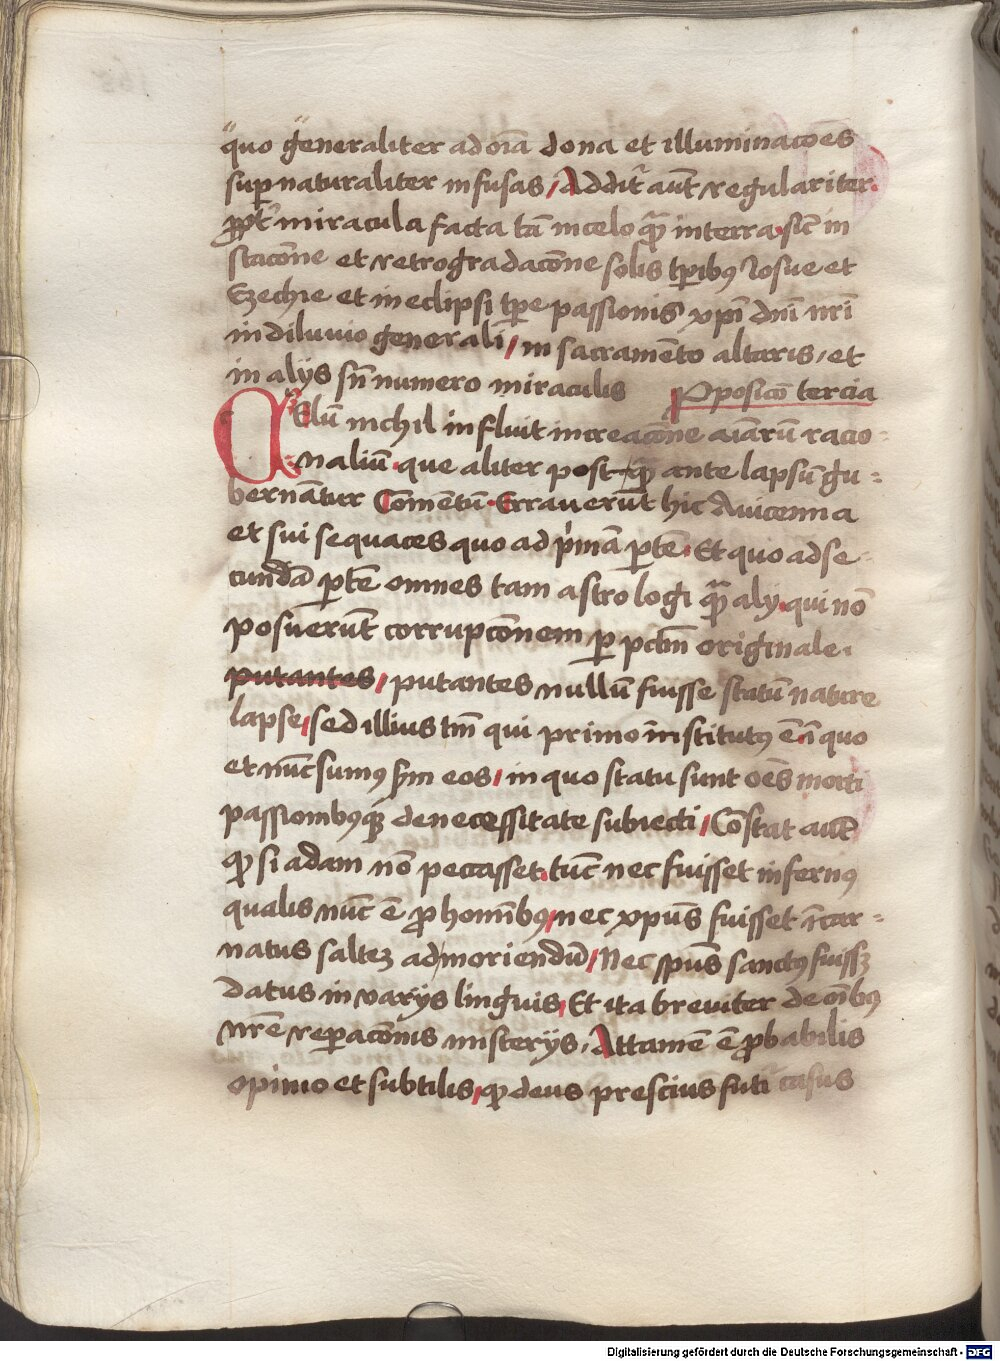 quo generaliter ad oīa dona et illuminacōes
supernaturaliter infusas / Additr̄ aūt regulariter
ꝓpt' miracula facta tā in celo quā in terra · sic̄ in
stacōne et retrogradacōne solis tꝑibꝰ Iosue et
Ezechie et in eclipsi tꝑe passionis xp̄i dn̄i nr̄i
in diluuio generali / in sacramēto altaris / et
in alijs sn̄ numero miraculis Ꝓposicō tercia
Celū nichil influit in creacōne aīarū racio-
naliū · que aliter post quā ante lapsū gu-
bernātur Comentū · Errauerūt hic Auicenna
et sui sequaces quo ad p'mā ꝑtē · Et quo ad se-
cundā ꝑtē omnes tam astrologi quā alij · qui nō
posuerūt corrupcōnem ꝑ pctm̄ originale ·
putantes / putantes nullū fuisse statū nature
lapse / sed illius tm̄ qui primo īnstitutꝰ ē · ī quo
et nūc sumꝰ sm̄ eos / in quo statu sunt oēs morti
passionibꝰqꝫ de necessitate subiecti / Cōstat aūt
ꝙ si adam nō peccasset · tūc nec fuisset infernꝰ
qualis nūc ē ꝓ hominībꝰ / nec xp̄us fuisset īcar-
natus saltez ad moriendū / Nec sp̄us sanctꝰ fuissꝫ
datus in varijs linguis / Et ita breuiter de oībꝰ
nr̄e reꝑacōnis misterijs · Attamē ē ꝓbabilis
opinio et subtilis / ꝙ deus prescius futi᷑ casus
Digitalisierung gefördert durch die Deutsche Forschungsgemeinschaft - DFG